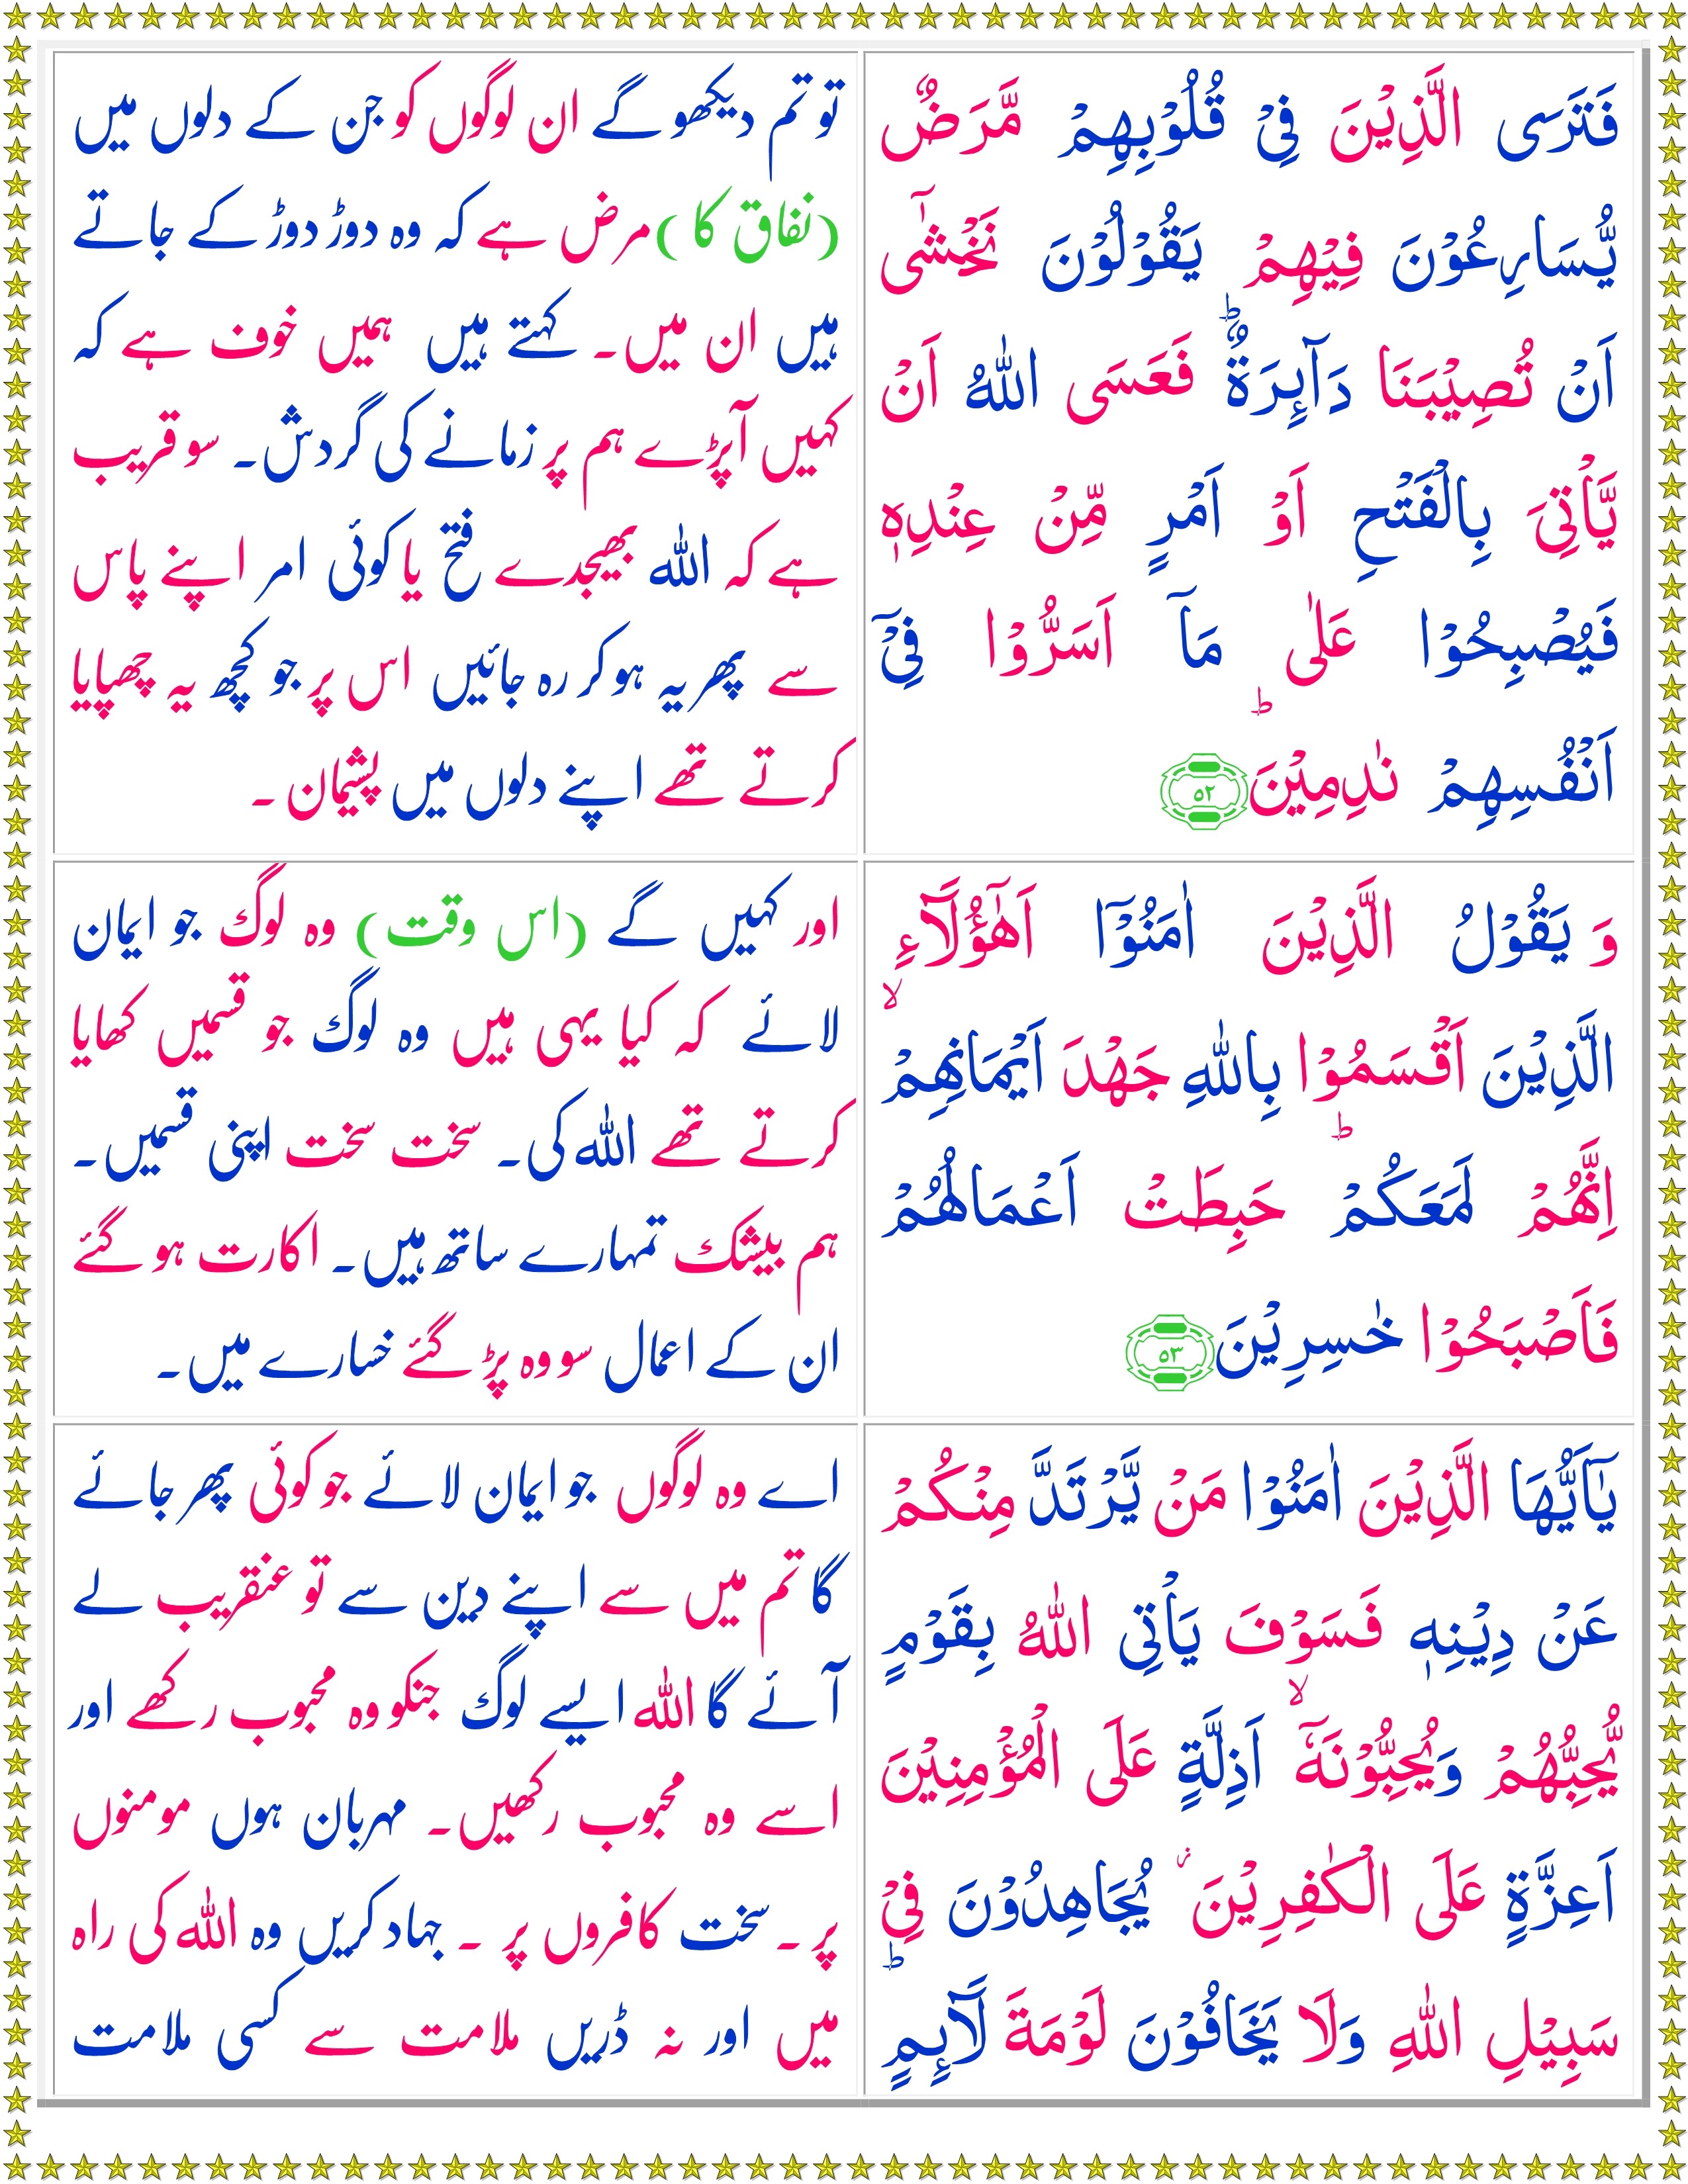 فَتَرَى الَّذِيْنَ فِيْ قُلُوْبِهِمْ مَّرَضٌ
يُّسَارِعُوْنَ فِيْهِمْ يَقُوْلُوْنَ نَخْشٰٓى
اَنْ تُصِيْبَنَا دَآئِرَةٌ ؕ فَعَسَى اللّٰهُ اَنْ
يَّاْتِيَ بِالْفَتْحِ اَوْ اَمْرٍ مِّنْ عِنْدِهٖ
فَيُصْبِحُوْا عَلٰى مَآ اَسَرُّوْا فِيْٓ
اَنْفُسِهِمْ نٰدِمِيْنَ ؕ ٥٢
تو تم دیکھو گے ان لوگوں کو جن کے دلوں میں
(نفاق کا) مرض ہے کہ وہ دوڑ دوڑ کے جاتے
ہیں ان میں۔ کہتے ہیں ہمیں خوف ہے کہ
کہیں آپڑے ہم پر زمانے کی گردش۔ سو قریب
ہے کہ اللہ بھیجدے فتح یا کوئی امر اپنے پاس
سے پھر یہ ہو کر رہ جائیں اس پر جو کچھ یہ چھپایا
کرتے تھے اپنے دلوں میں پشیمان ۔
وَ يَقُوْلُ الَّذِيْنَ اٰمَنُوْٓا اَهٰٓؤُلَآءِ
الَّذِيْنَ اَقْسَمُوْا بِاللّٰهِ جَهْدَ اَيْمَانِهِمْ ۙ
اِنَّهُمْ لَمَعَكُمْ ؕ حَبِطَتْ اَعْمَالُهُمْ
فَاَصْبَحُوْا خٰسِرِيْنَ ٥٣
اور کہیں گے (اس وقت) وہ لوگ جو ایمان
لائے کہ کیا یہی ہیں وہ لوگ جو قسمیں کھایا
کرتے تھے اللہ کی۔ سخت سخت اپنی قسمیں۔
ہم بیشک تمہارے ساتھ ہیں۔ اکارت ہو گئے
ان کے اعمال سو وہ پڑ گئے خسارے میں۔
يٰٓاَيُّهَا الَّذِيْنَ اٰمَنُوْا مَنْ يَّرْتَدَّ مِنْكُمْ
عَنْ دِيْنِهٖ فَسَوْفَ يَاْتِى اللّٰهُ بِقَوْمٍ
يُّحِبُّهُمْ وَيُحِبُّوْنَهٗٓ ۙ اَذِلَّةٍ عَلَى الْمُؤْمِنِيْنَ
اَعِزَّةٍ عَلَى الْكٰفِرِيْنَ ؗ يُجَاهِدُوْنَ فِيْ
سَبِيْلِ اللّٰهِ وَلَا يَخَافُوْنَ لَوْمَةَ لَآئِمٍ ؕ
اے وہ لوگوں جو ایمان لائے جو کوئی پھر جائے
گا تم میں سے اپنے دین سے تو عنقریب لے
آئے گا اللہ ایسے لوگ جنکو وہ محبوب رکھے اور
اسے وہ محبوب رکھیں۔ مہربان ہوں مومنوں
پر۔ سخت کافروں پر ۔ جہاد کریں وہ اللہ کی راہ
میں اور نہ ڈریں ملامت سے کسی ملامت